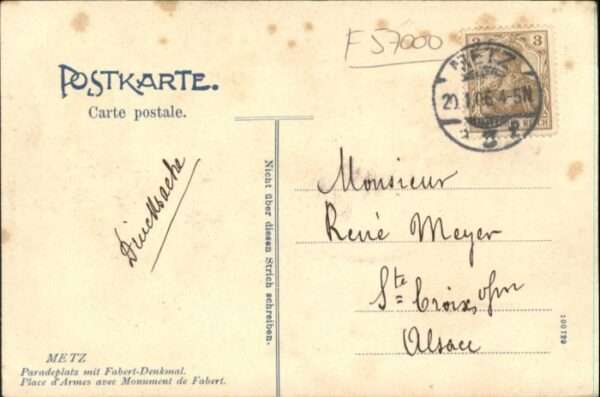 F 57000
3
METZ
20.1.06.4-5N
POSTKARTE.
Carte postale.
Drucksache
Nicht über diesen Strich schreiben.
Monsieur
René Meyer
Ste Croix
Alsace
100129
METZ
Paradeplatz mit Fabert-Denkmal.
Place d'Armes avec Monument de Fabert.